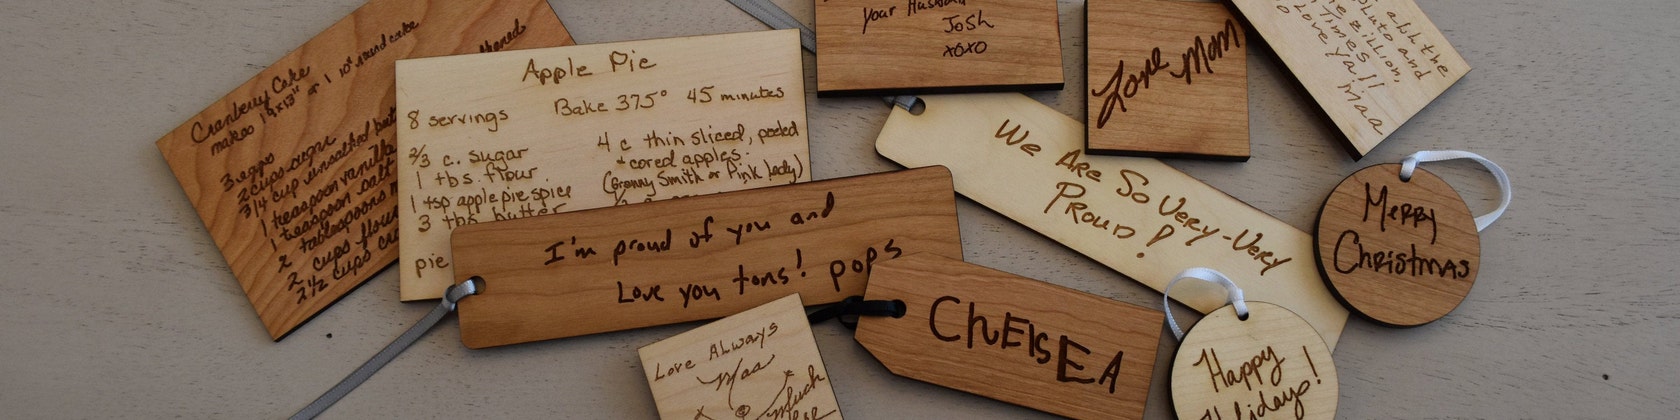 Cranberry Cake
makes 1 9x13" or 1 10" round cake
3 eggs
2 cups sugar
3/4 cup unsalted butter
1 teaspoon vanilla
1 teaspoon salt
2 tablespoons
2 cups flour
2 1/2 cups
Apple Pie
8 servings Bake 375° 45 minutes
2/3 c. sugar
1 tbs. flour
1 tsp apple pie spice
3 tbs. butter
pie
4 c thin sliced, peeled
+ cored apples.
(Granny Smith or Pink Lady)
your Husband
Josh
xoxo
Love Mom
Times
Love ya!!
Maa
We Are So Very-Very
Proud!
Merry
Christmas
I'm proud of you and
Love you tons! pops
Love Always
Maa
Much
ChElsEA
Happy
Holidays!